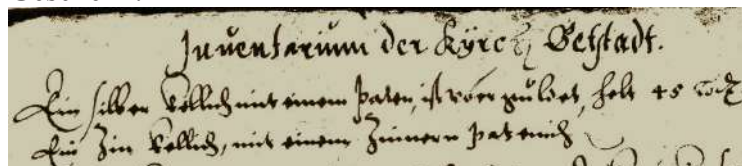 Inventarium der Kyrch Betstadt.
Ein silber Kellich mit einem Paten, ist vber guldet, helt 45
Ein Zin Kellich, mit einem Zinnern Patenich